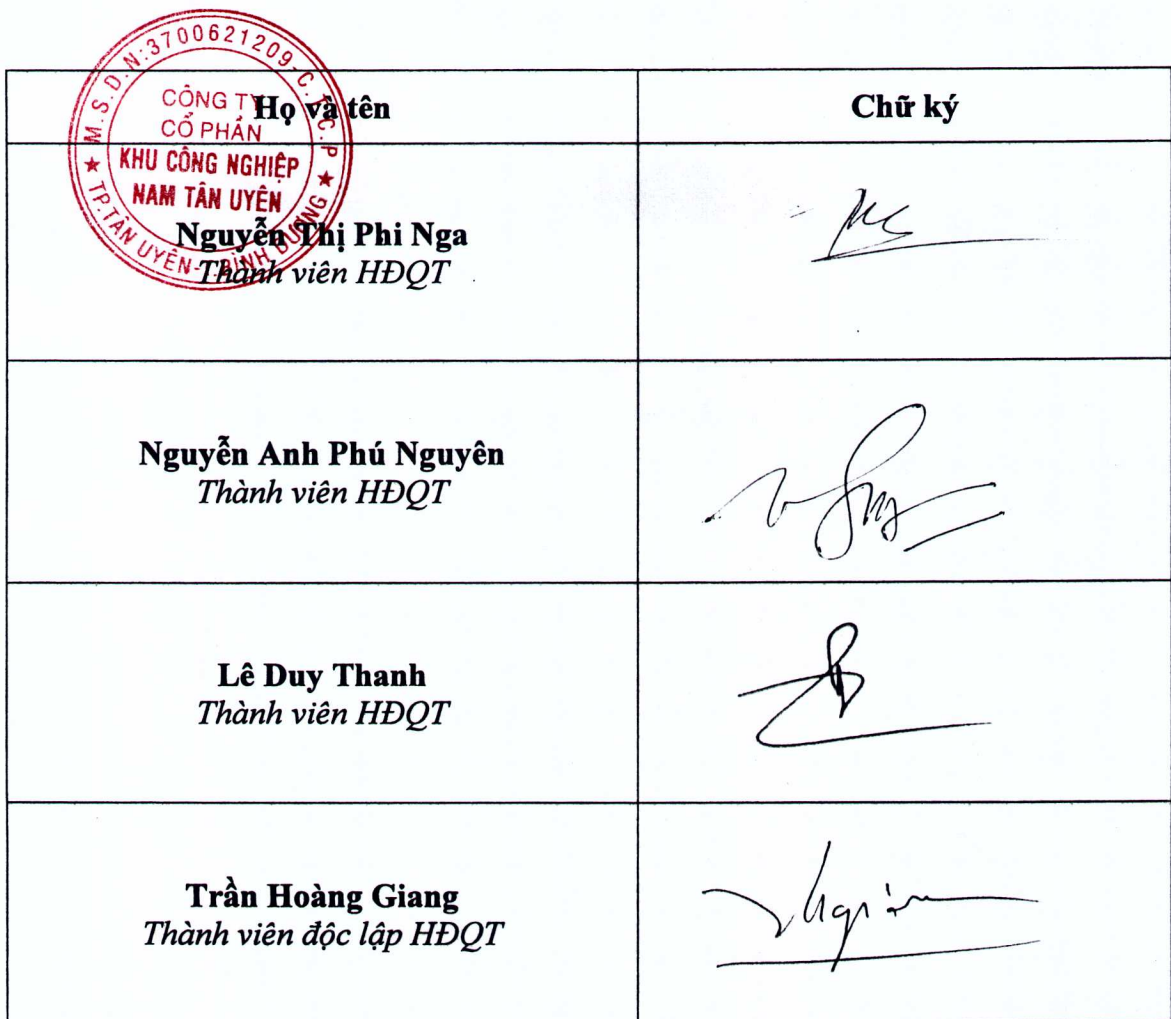 M.S.D.N:3700621209-C.T.C.P
CÔNG TY
CỔ PHẦN
KHU CÔNG NGHIỆP
NAM TÂN UYÊN
TP.TÂN UYÊN-T.BÌNH DƯƠNG
Họ và tên
Chữ ký
Nguyễn Thị Phi Nga
Thành viên HĐQT
Nguyễn Anh Phú Nguyên
Thành viên HĐQT
Lê Duy Thanh
Thành viên HĐQT
Trần Hoàng Giang
Thành viên độc lập HĐQT